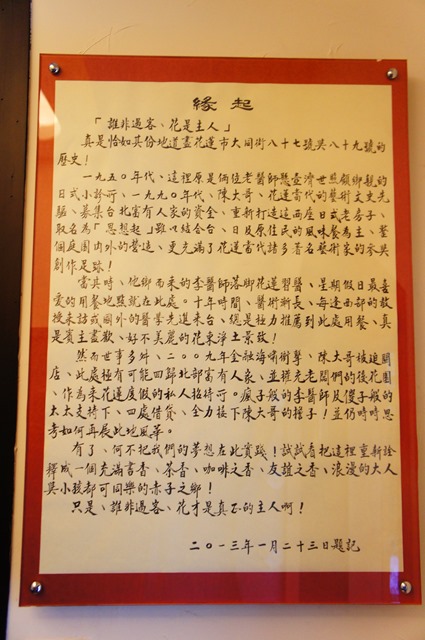 緣起
「誰非過客、花是主人」
真是恰如其份地道盡花蓮市大同街八十七號與八十九號的
歷史!
一九五○年代、這裡原是倆位老醫師懸壺濟世照顧鄉親的
日式小診所.一九九○年代、陳大哥、花蓮當代的藝術文史先
驅、募集台北富有人家的資金、重新打造這兩座日式老房子、
取名為「思想起」難以結合台、日及原住民的風味餐為主、整
個庭園內外的營造、更充滿了花蓮當代諸多著名藝術家的參與
創作足跡!
當其時、他鄉而來的李醫師落腳花蓮習醫、星期假日最喜
愛的用餐地點就在此處.十年時間、醫術漸長、每逢西部的教
授來訪或國外的醫學先進來台、總是極力推薦到此處用餐、真
是賓主盡歡、好不美麗的花東淨土景致!
然而世事多舛、二○○九年金融海嘯衝擊、陳大哥被迫關
店、此處極有可能回歸北部富有人家、並權充老闆們的後花園
、作為來花蓮度假的私人招待所.瘋子般的李醫師及傻子般的
太太支持下、四處借貸、全力接下陳大哥的擔子!並仍時時思
考如何再展此地風華.
有了、何不把我們的夢想在此實踐!試試看把這裡重新詮
釋成一個充滿書香、茶香、咖啡之香、友誼之香、浪漫的大人
與小孩都可同樂的赤子之鄉!
只是、誰非過客、花才是真正的主人啊!
二○一三年一月二十三日題記